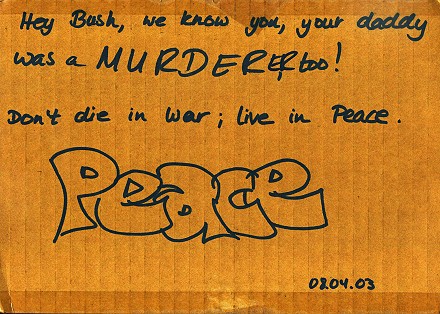 Hey Bush, we know you, your daddy
was a MURDERER too!
Don't die in war; live in Peace.
Peace
02.04.03